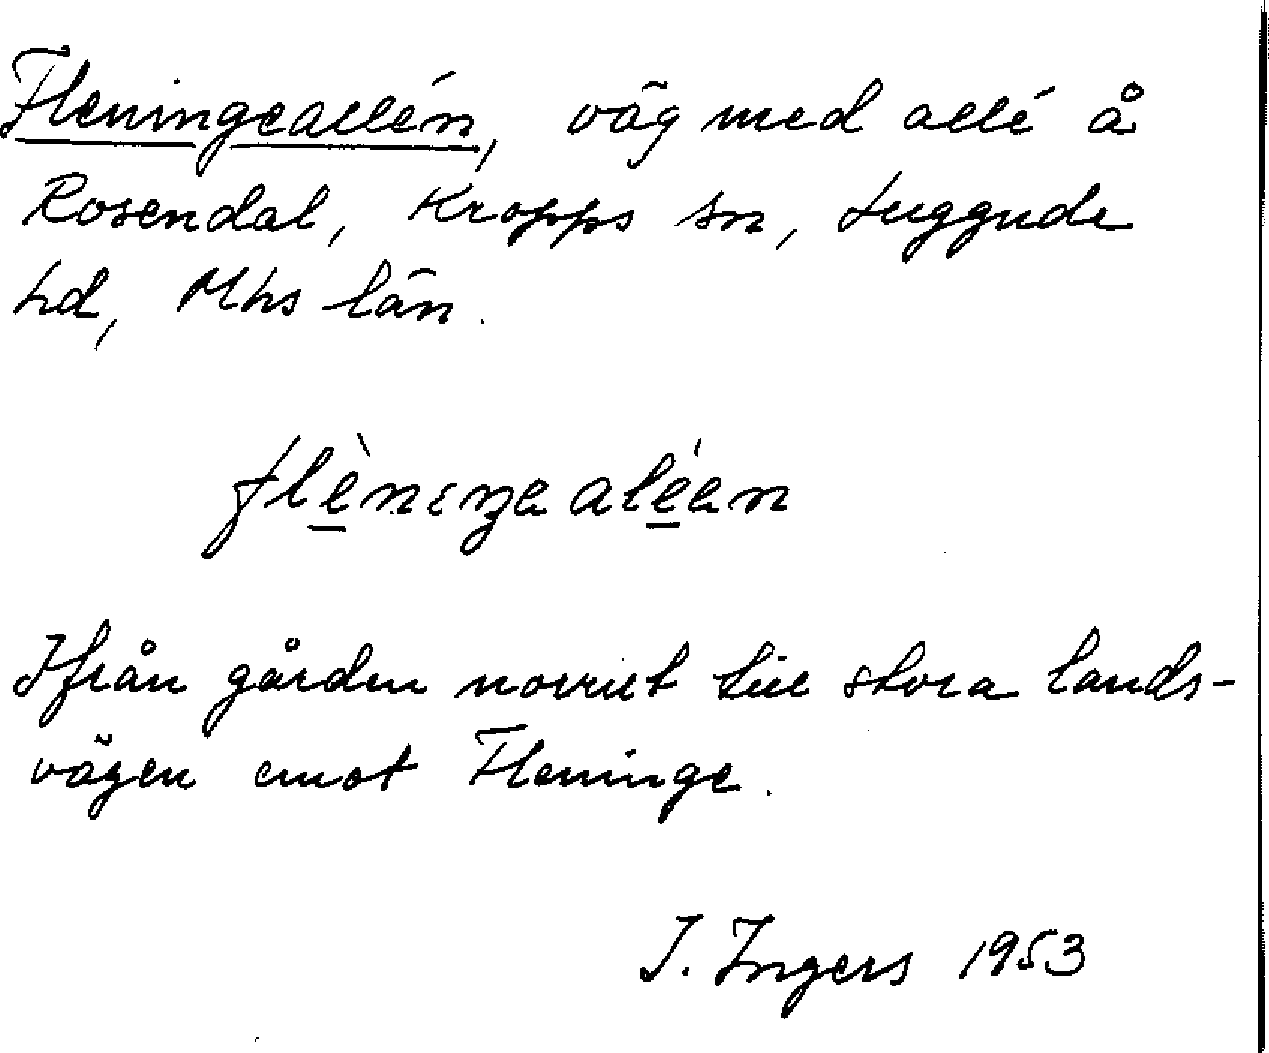 Fleningeallén, väg med allé å
Rosendal, Kropps sn, Luggude
hd, Mhs län.
flèniŋe aléen
Ifrån gården norrut till stora lands-
vägen emot Fleninge.
I. Ingers 1953